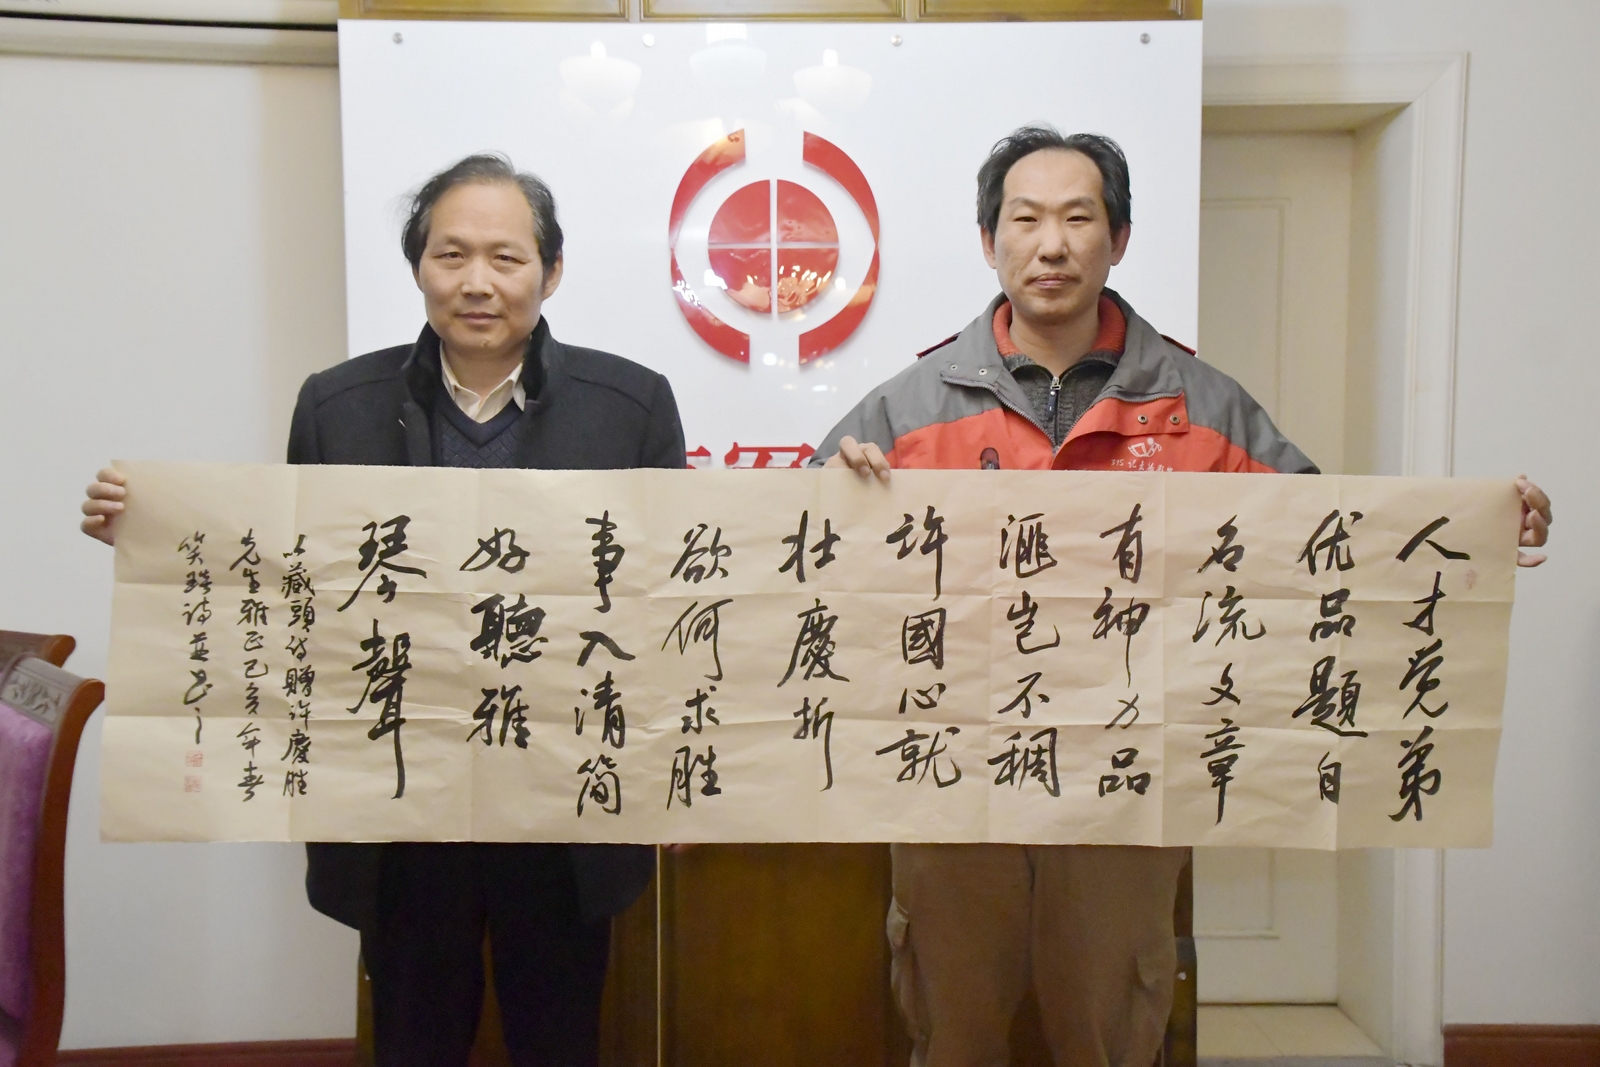 人才党弟
优品题自
名流文章
有神力品
滙岂不稠
许國心就
壮慶折
欲何求胜
事入清简
好聽雅
琴聲
以藏頭诗贈许慶胜
先生雅正己亥年春
笑琰诗并书之